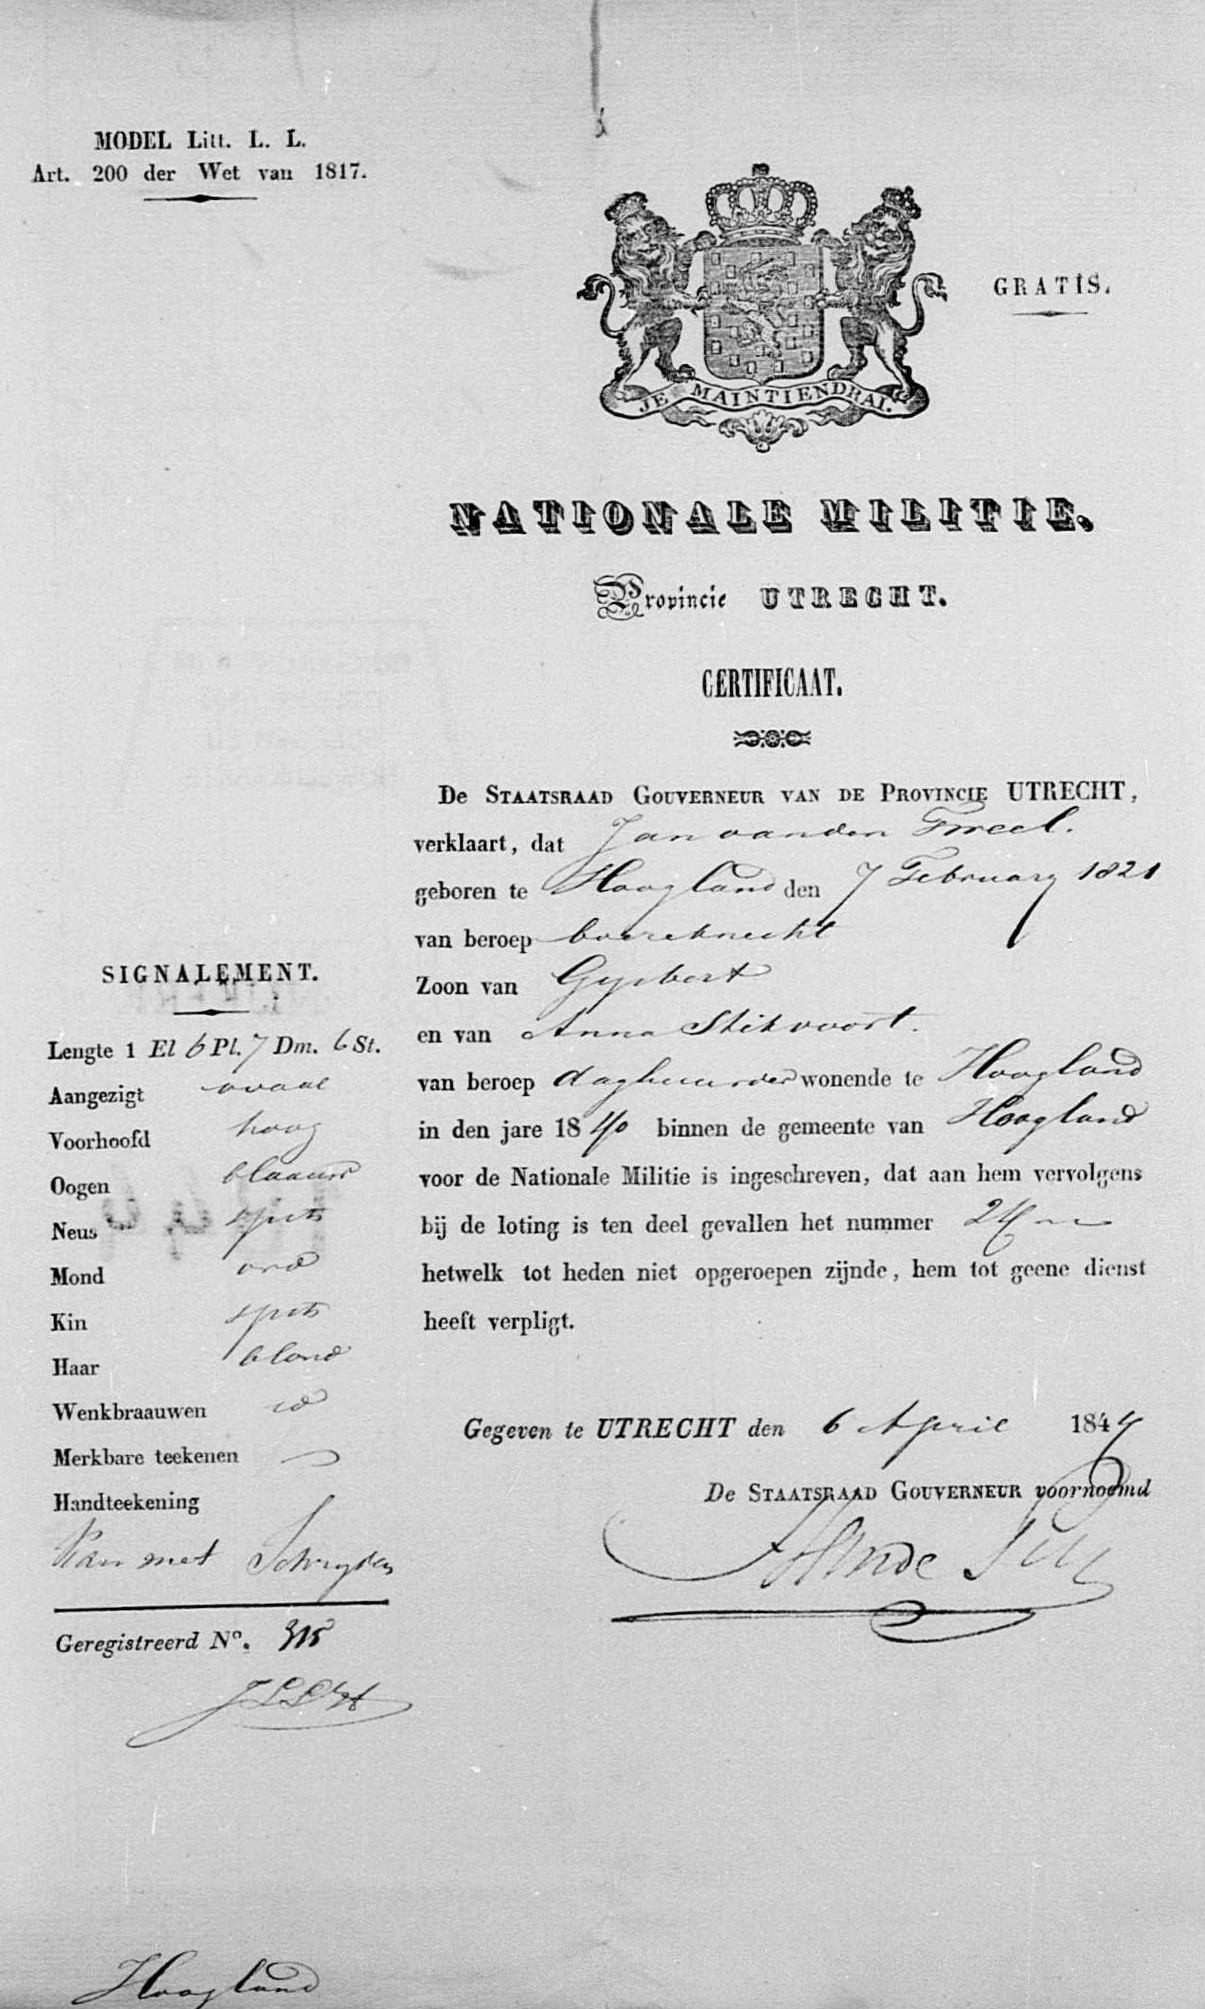 MODEL Litt. L. L.
Art. 200 der Wet van 1817.
GRATIS.
JE MAINTIENDRAI.
NATIONALE MILITIE.
Provincie UTRECHT.
CERTIFICAAT.
De STAATSRAAD GOUVERNEUR VAN DE PROVINCIE UTRECHT,
verklaart, dat Jan van den
geboren te Hoogland den 7 February 1821
van beroep boereknecht
Zoon van Gysbert
en van Anna Stikvoort.
van beroep daghuurder wonende te Hoogland
in den jare 1840 binnen de gemeente van Hoogland
voor de Nationale Militie is ingeschreven, dat aan hem vervolgens
bij de loting is ten deel gevallen het nummer 24
hetwelk tot heden niet opgeroepen zijnde, hem tot geene dienst
heeft verpligt.
Gegeven te UTRECHT den 6 April 1844
De STAATSRAAD GOUVERNEUR voornoemd
SIGNALEMENT.
Lengte 1 El 6 Pl. 7 Dm. 6 St.
Aangezigt ovaal
Voorhoofd hoog
Oogen blaauw
Neus spits
Mond ord
Kin spits
Haar blond
Wenkbraauwen id
Merkbare teekenen
Handteekening
Kan niet Schryven
Geregistreerd No. 315
Hoogland